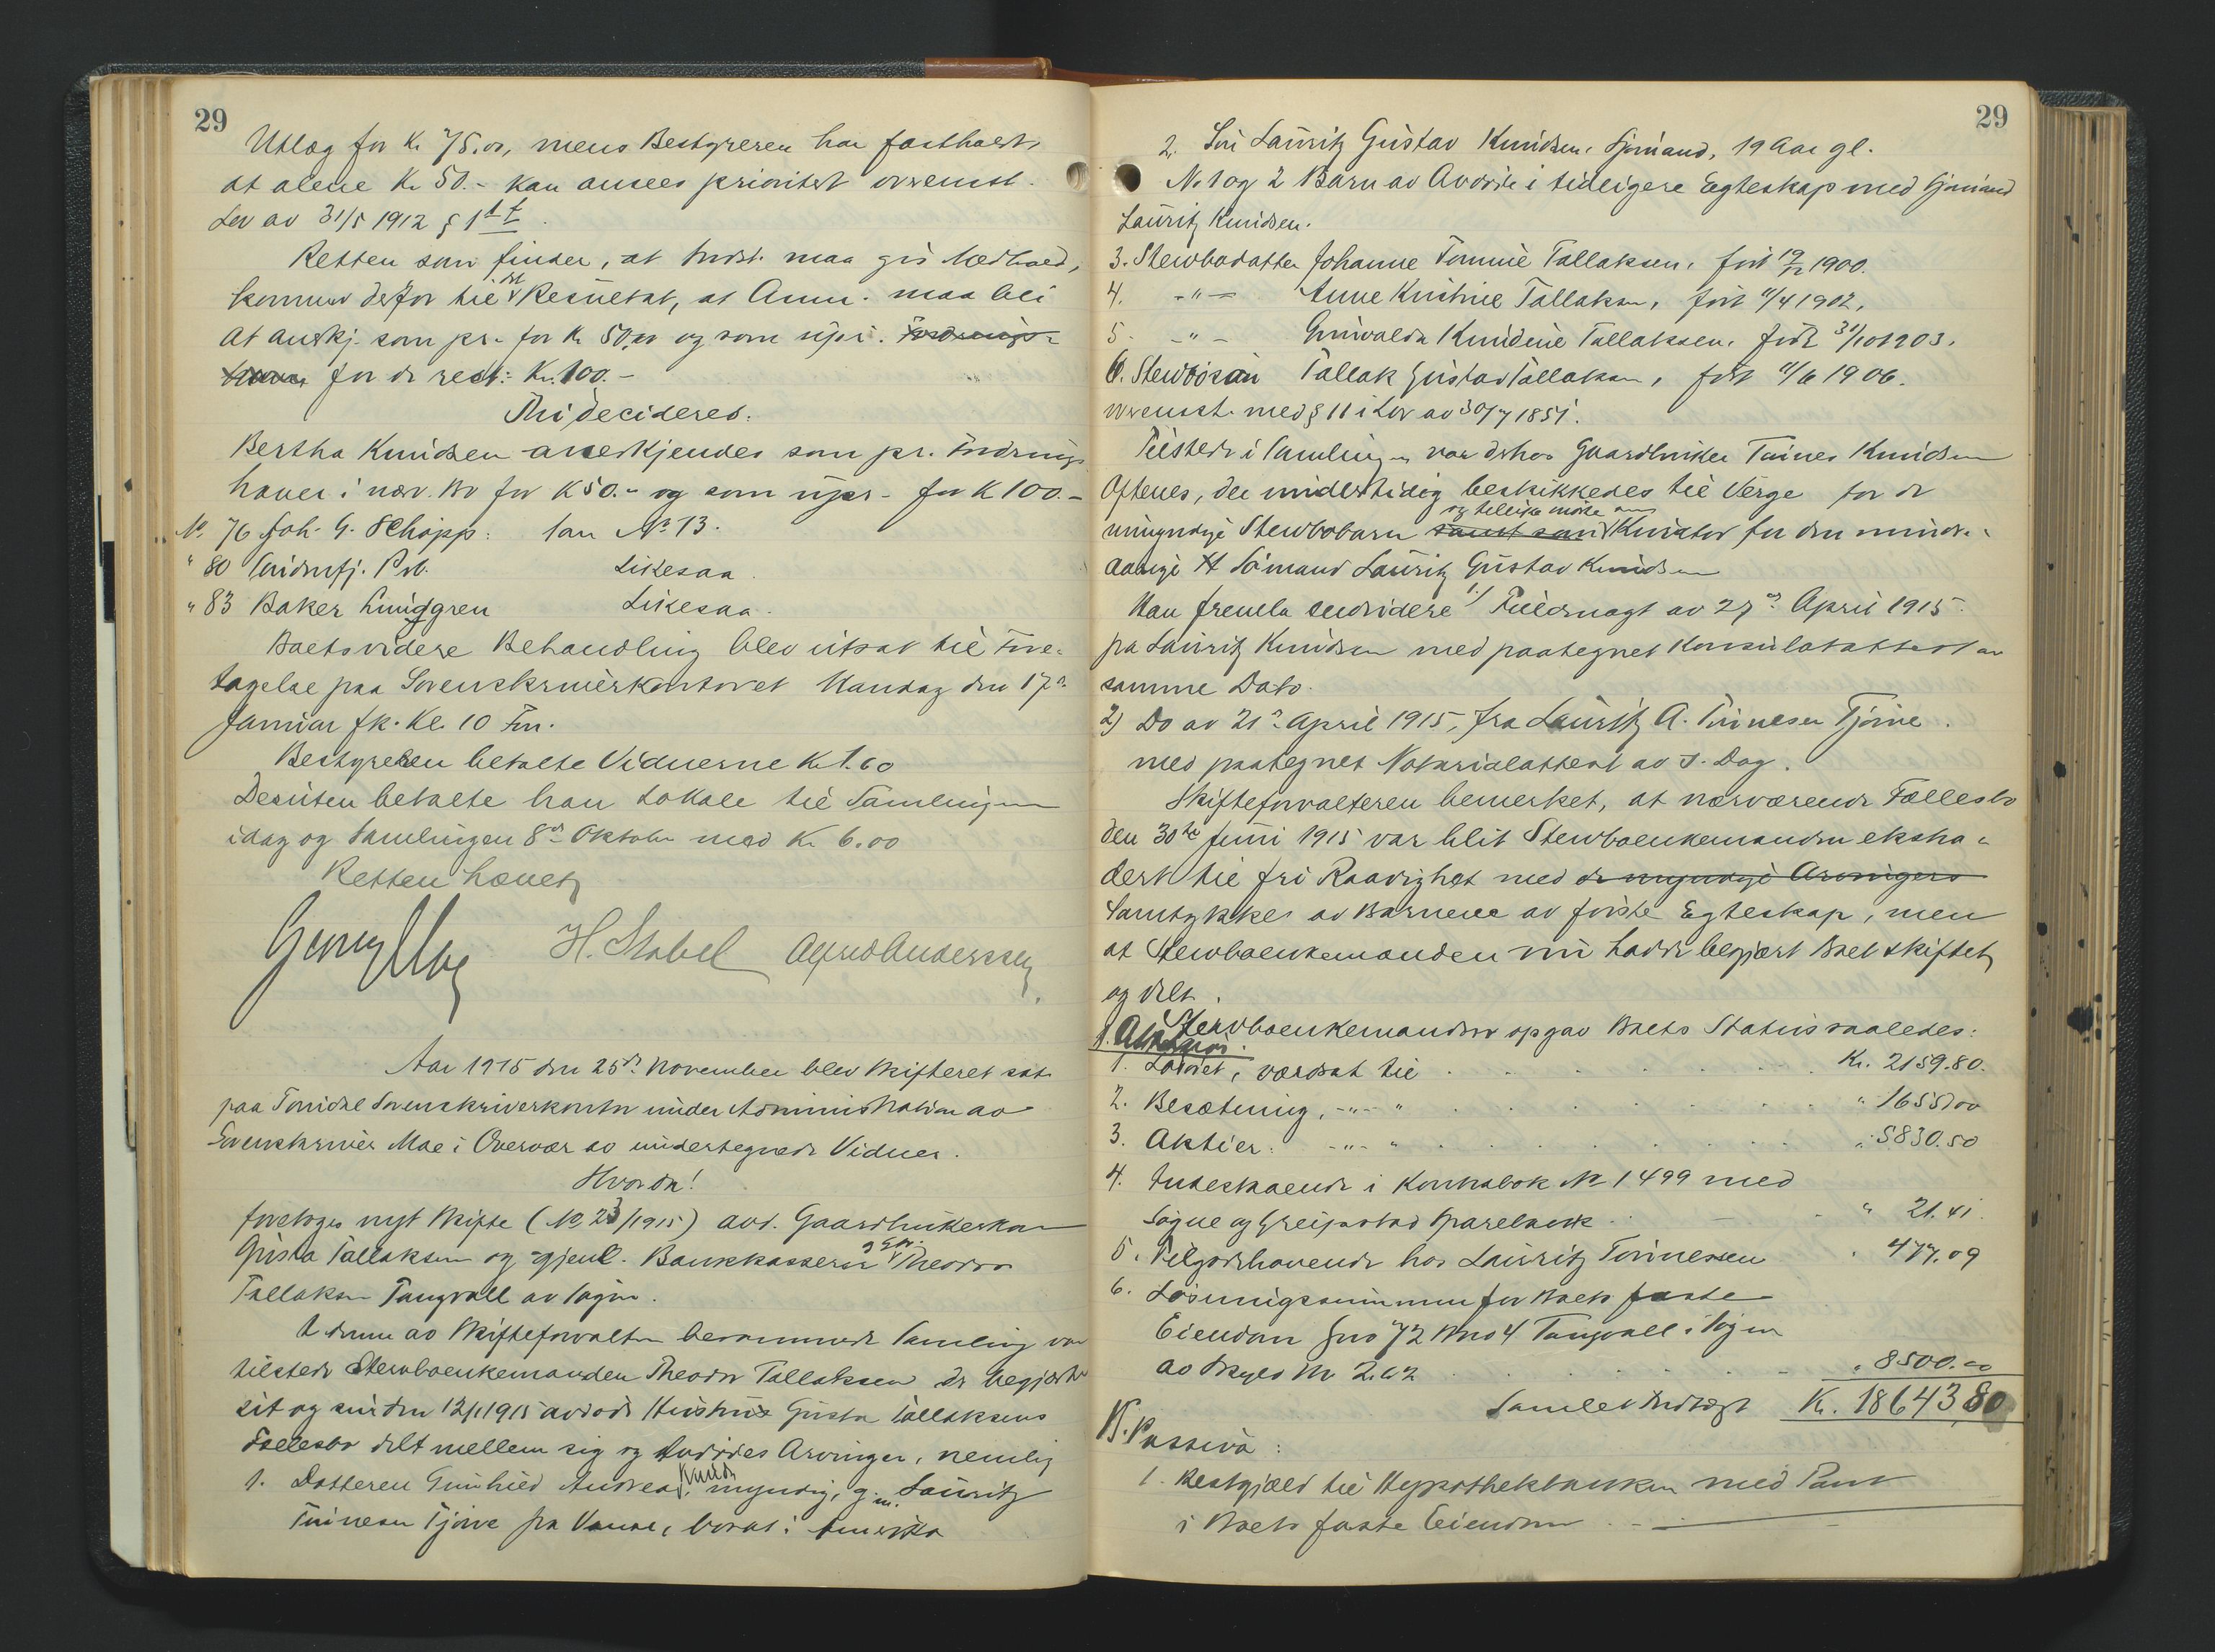 29
Utlæg for Kr 75.00, mens Bestyreren har fastholdt,
at alene Kr 50.- kan ansees prioritert overensst.
Lov av 31/5 1912 § 1
Retten som finder, at Indst. maa gis Medhold,
kommer derfor til det Resultat, at Anm. maa bli
at anerkj. som pr. for Kr 50,00 og som upr.
for de rest: Kr. 100.-
Thi decideres:
Bertha Knudsen anerkjendes som pr. Fordrings
haver i nærv. Bo for K 50.- og som upr. for K 100.-
No 76 Joh. G. Schøpp: Som No 13.
" 80 Likesaa.
" 83 Baker Lundgren Likesaa.
Boets videre Behandling blev utsat til Fore-
tagelse paa Sorenskriverkontoret Mandag den 17de
Januar fk. Kl. 10 Fm.
Bestyreren betalte Vidnerne Kr 1.60
Desuten betalte han Lokale til Samlingen
idag og Samlingen 8de Oktober med Kr 6.00
Retten hævet
H. Stabel Alfred Anderssen
Aar 1915 den 25de November blev Skifteret sat
paa Torridal Sorenskriverkontor under Administration av
Sorenskriver Moe i Overvær av undertegnede Vidner.
Hvorda!
foretoges nyt Skifte (No 23/1915) avd. Gaardbrukerkone
Gusta Tallaksen og gjenl. Bankkasserer og Gbr. Theodor
Tallaksen Tangvall av Søgne.
I denne av Skifteforvalteren berammede Samling var
tilstede Stervboenkemanden Theodor Tallaksen der begjærte
sit og sin den 12/1 1915 avdøde Hustru Gusta Tallaksens
Fællesbo delt mellem sig og Avdødes Arvinger, nemlig
1. Datteren Gunhild Andrea Knuds. myndig, g. m. Lauritz
Tønnesen Tjøive fra Vanse, bosat i Amerika
29
2. Søn Lauritz Gustav Knudsen, Sjømand, 19 Aar gl.
No 1 og 2 Barn av Avdøde i tidligere Egteskap med Sjømand
Lauritz Knudsen.
3. Stervbodatter Johanne Tomine Tallaksen, født 19/12 1900.
4. -"- Anne Kristine Tallaksen, født 11/4 1902,
5. -"- Gunvalda Knudine Tallaksen, født 31/10 1903.
6. Stervbosøn Tallak Gustav Tallaksen, født 11/6 1906.
overensst. med § 11 i Lov av 30/7 1851.
Tilstede i Samlingen var derhos Gaardbruker Tønnes Knudsen
Aftenes, der midlertidig beskikkedes til Verge for de
umyndige Stervbobarn samt som Kurator for den mindre-
aarige Sømand Lauritz Gustav Knudsen
Man fremla endvidere 1) Fuldmagt av 27de April 1915
fra Lauritz Knudsen med paategnet Konsulatattest av
samme Dato.
2) Do av 21de April 1915, fra Lauritz A. Tønnesen Tjøive.
med paategnet Notarialattest av s. Dag.
Skifteforvalteren bemerket, at nærværende Fællesbo
den 30te Juni 1915 var blit Stervboenkemanden ekstra-
dert til fri Raadighet med de myndige Arvingers
Samtykke av Barnene av første Egteskap, men
at Stervboenkemanden nu hadde begjært Boet skiftet
og delt.
Stervboenkemanden opgav Boets Status saaledes:
A. Aktiva.
1. Løsøret, værdsat til Kr. 2159.80.
2. Besætning, -"- " " 1655.00
3. Aktier: -"- " " 5830.50
4. Indestaaende i Kontrabok No 1499 med
Søgne og Greipstad Sparebank " 21.41
5. Tilgodehavende hos Lauritz Tønnessen " 477.09
6. Løsningssummen for Boets faste
Eiendom Gno 72 Bno 4 Tangvall i Søgne
av Skyld M. 2.62 " 8500.00
Samlet Indtægt Kr. 18643,80
B. Passiva:
1. Restgjæld til Hypothekbanken med Pant
i Boets faste Eiendom